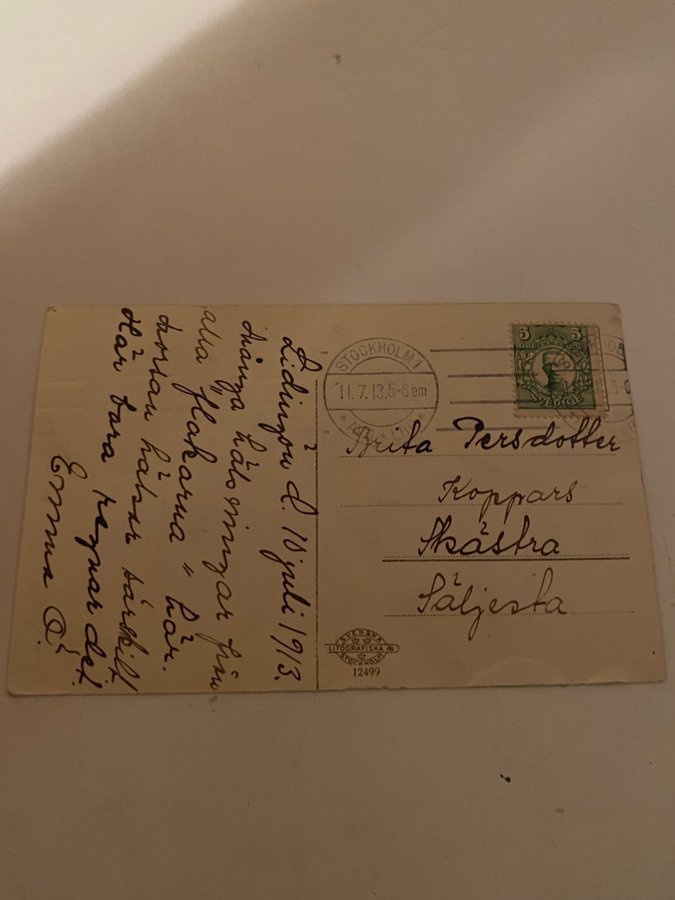 Lidingön d. 10 juli 1913.
Många hälsningar från
alla "flakarna" här.
hälsar särskilt.
Här bara regnar det.
Emma Ö.
STOCKHOLM 1
11.7.13.5-6 em
5 5
SVERIGE
Brita Persdotter
Koppars
Skästra
Säljesta
SVENSKA
LITOGRAFISKA AB.
STOCKHOLM
12499